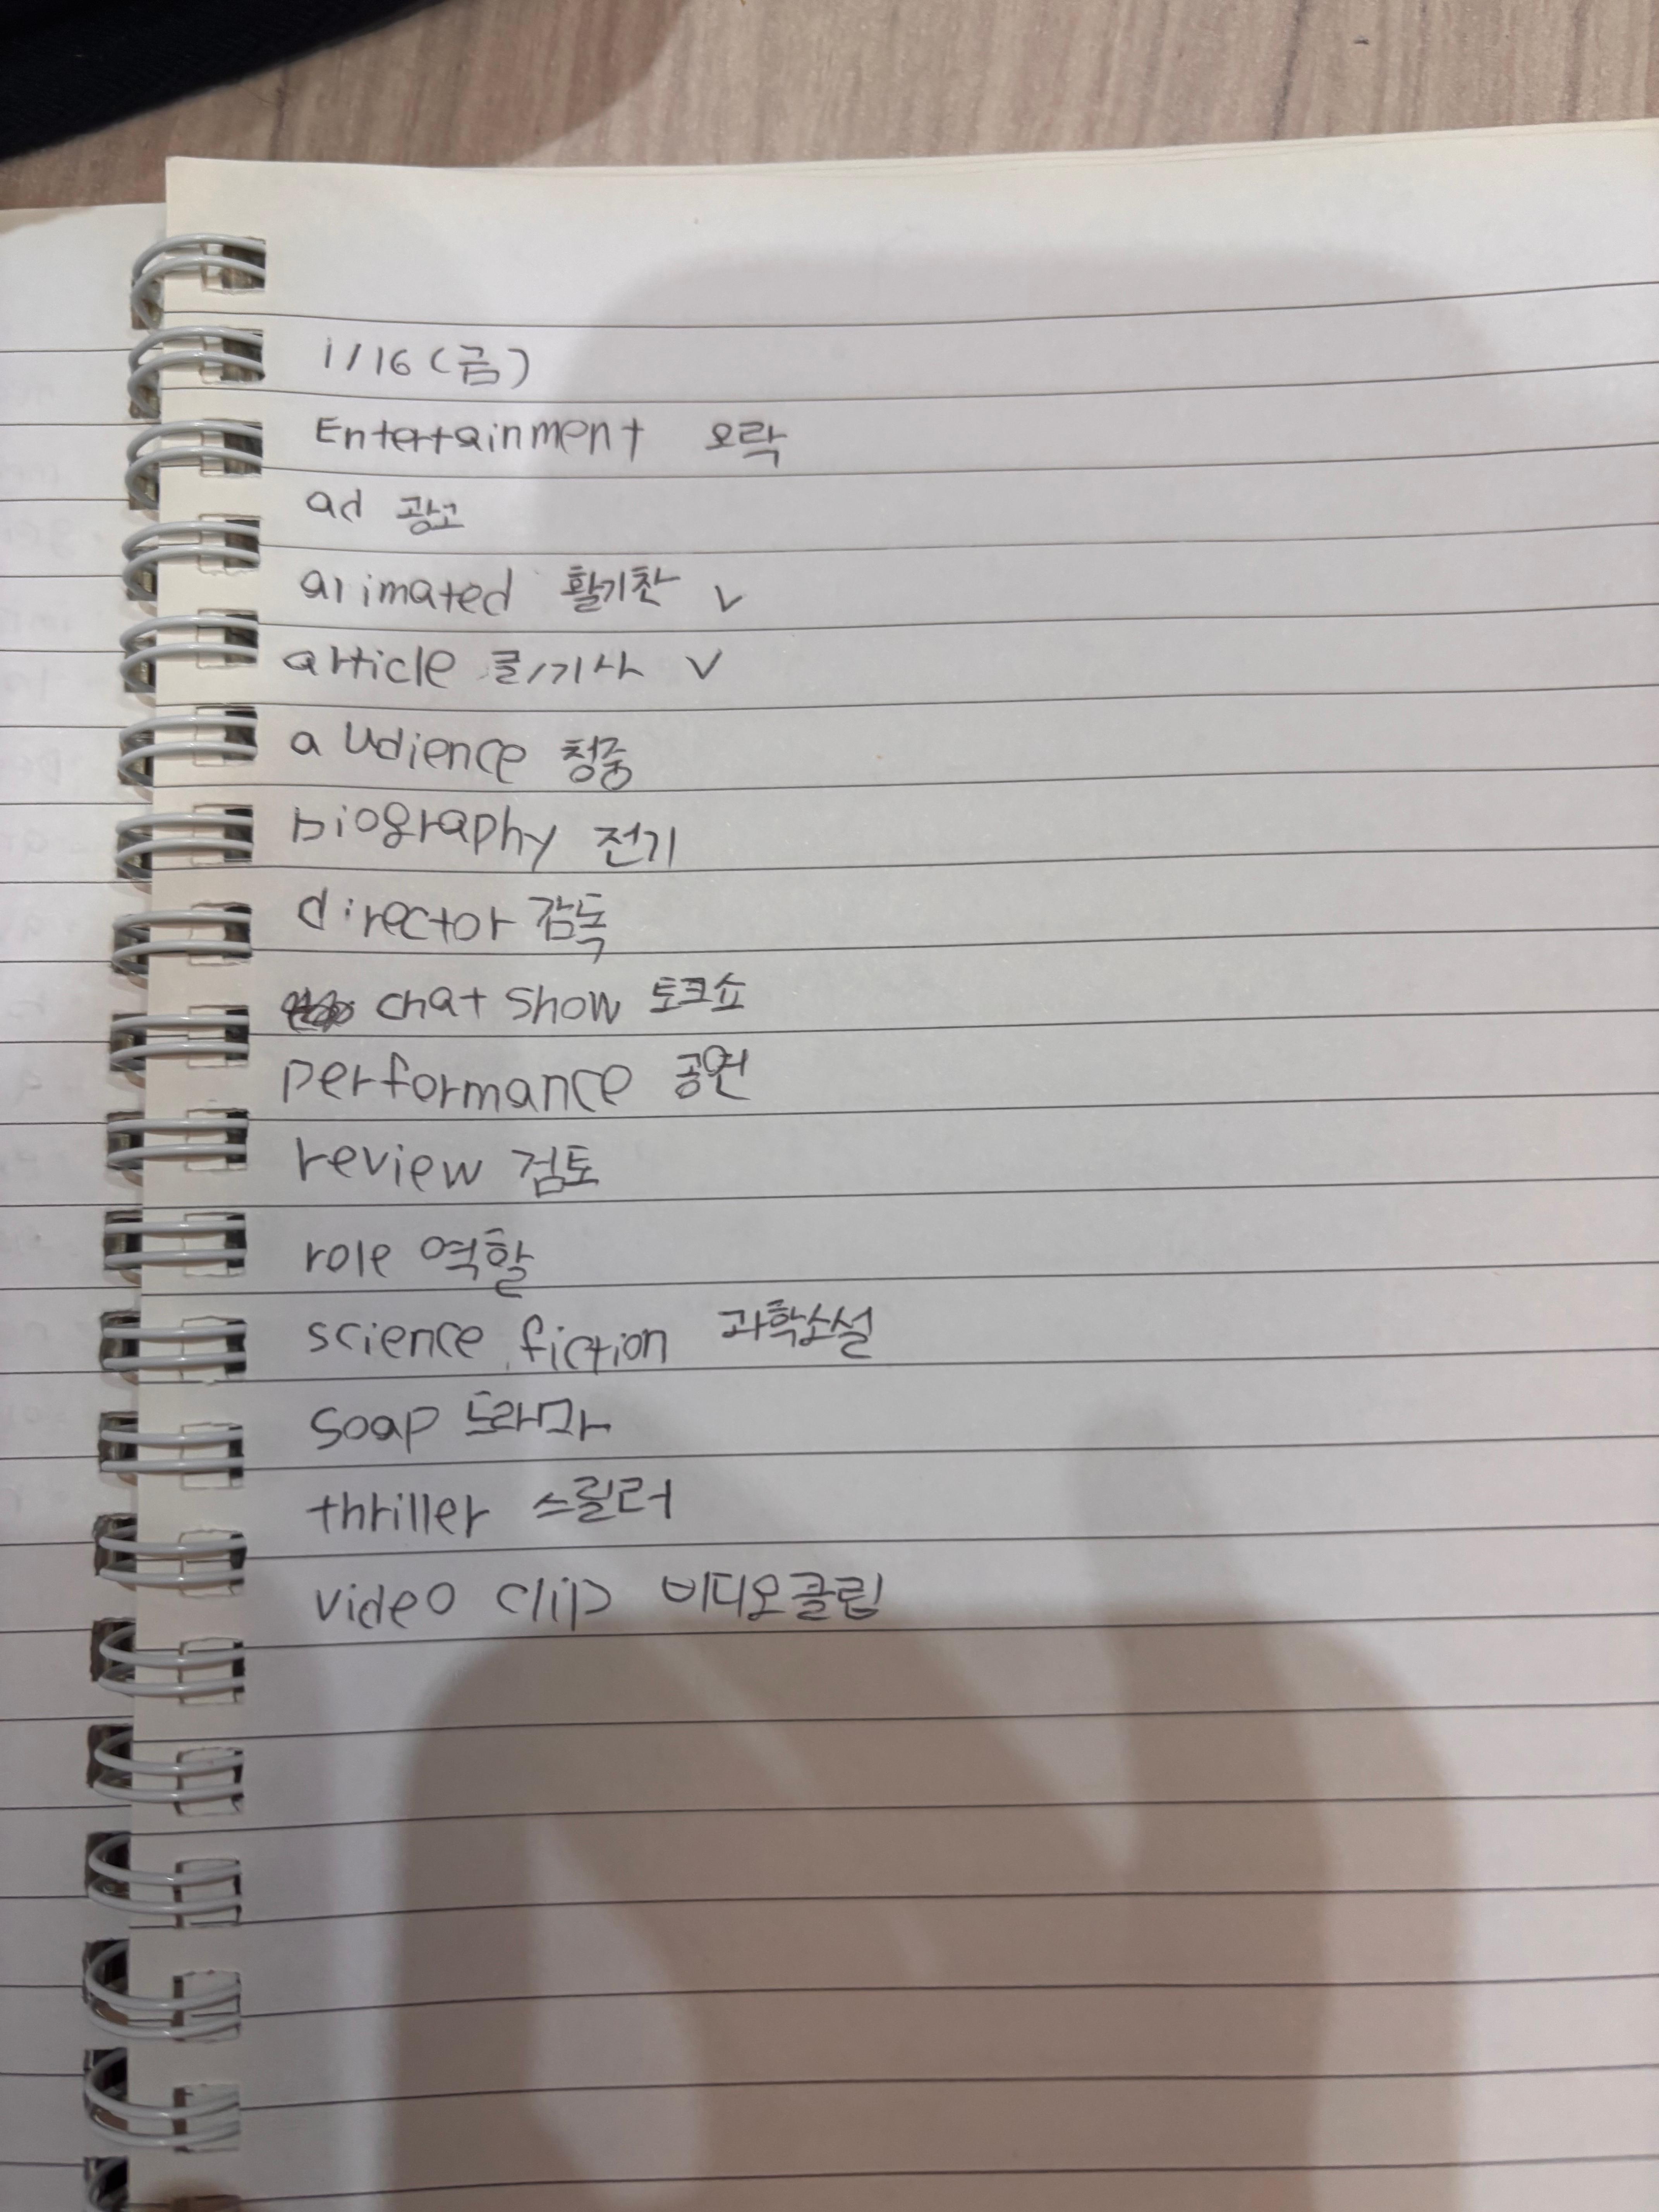 1/16(금)
Entertainment 오락
ad 광고
animated 활기찬 ✓
article 글/기사 ✓
audience 청중
biography 전기
director 감독
chat show 토크쇼
performance 공연
review 검토
role 역할
science fiction 과학소설
soap 드라마
thriller 스릴러
video clip 비디오클립